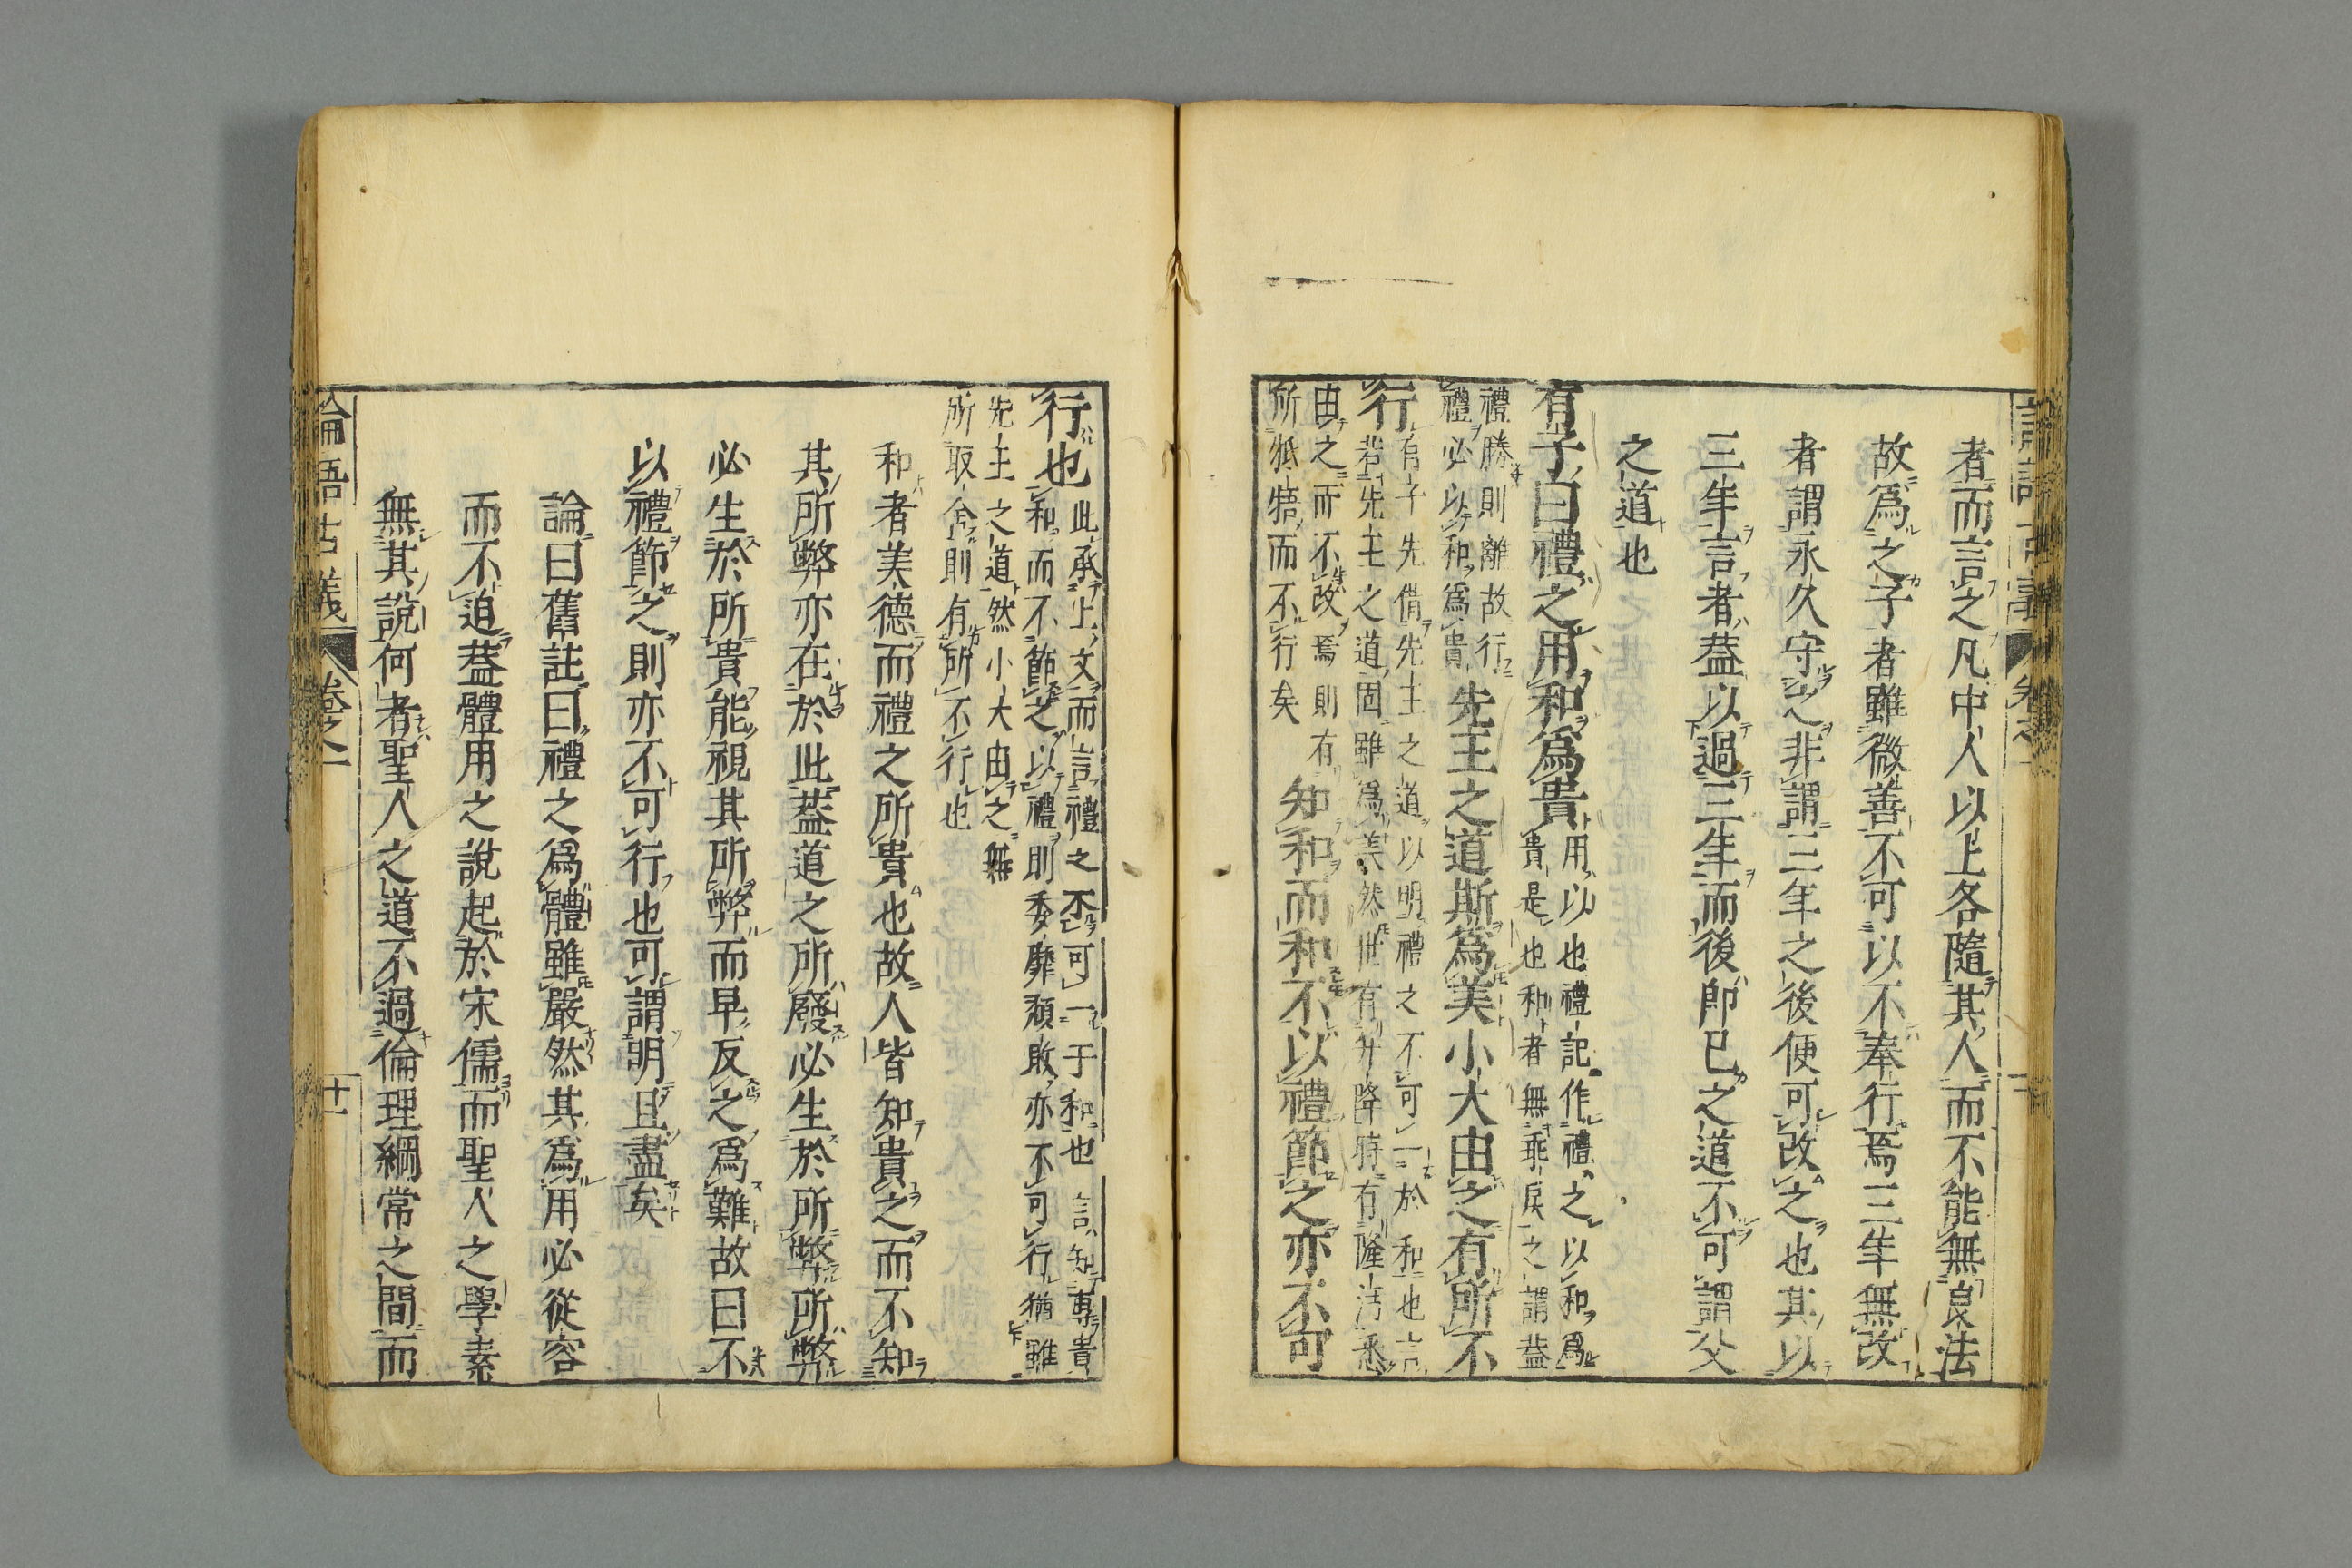 者而言之凡中人以上各隨其人而不能無良法
故爲之子者雖微善不可以不奉行焉三年無改
者謂永久守之非謂三年之後便可改之也其以
三年言者蓋以過三年而後即已之道不可謂父
之道也
有子曰禮之用和爲貴
用以也禮記作禮之以和爲
貴是也和者無乖戾之謂蓋
禮勝則離故行
禮必以和爲貴
先王之道斯爲美小大由之有所不
行
有子先借先王之道以明禮之不可一於和也言
若先王之道固雖爲美然世有升降時有隆汚悉
由之而不改焉則有
所牴牾而不行矣
知和而和不以禮節之亦不可
行也
此承上文而言禮之不可一于和也 言知專貴
和而不節之以禮則委靡頹敗亦不可行猶雖
先王之道然小大由之無
所取舍則有所不行也
和者美德而禮之所貴也故人皆知貴之而不知
其所弊亦在於此蓋道之所廢必生於所弊所弊
必生於所貴能視其所弊而早反之爲難故曰不
以禮節之則亦不可行也可謂明且盡矣
論曰舊註曰禮之爲體雖嚴然其爲用必從容
而不迫蓋體用之說起於宋儒而聖人之學素
無其說何者聖人之道不過倫理綱常之間而
論語古義
卷之一
十一